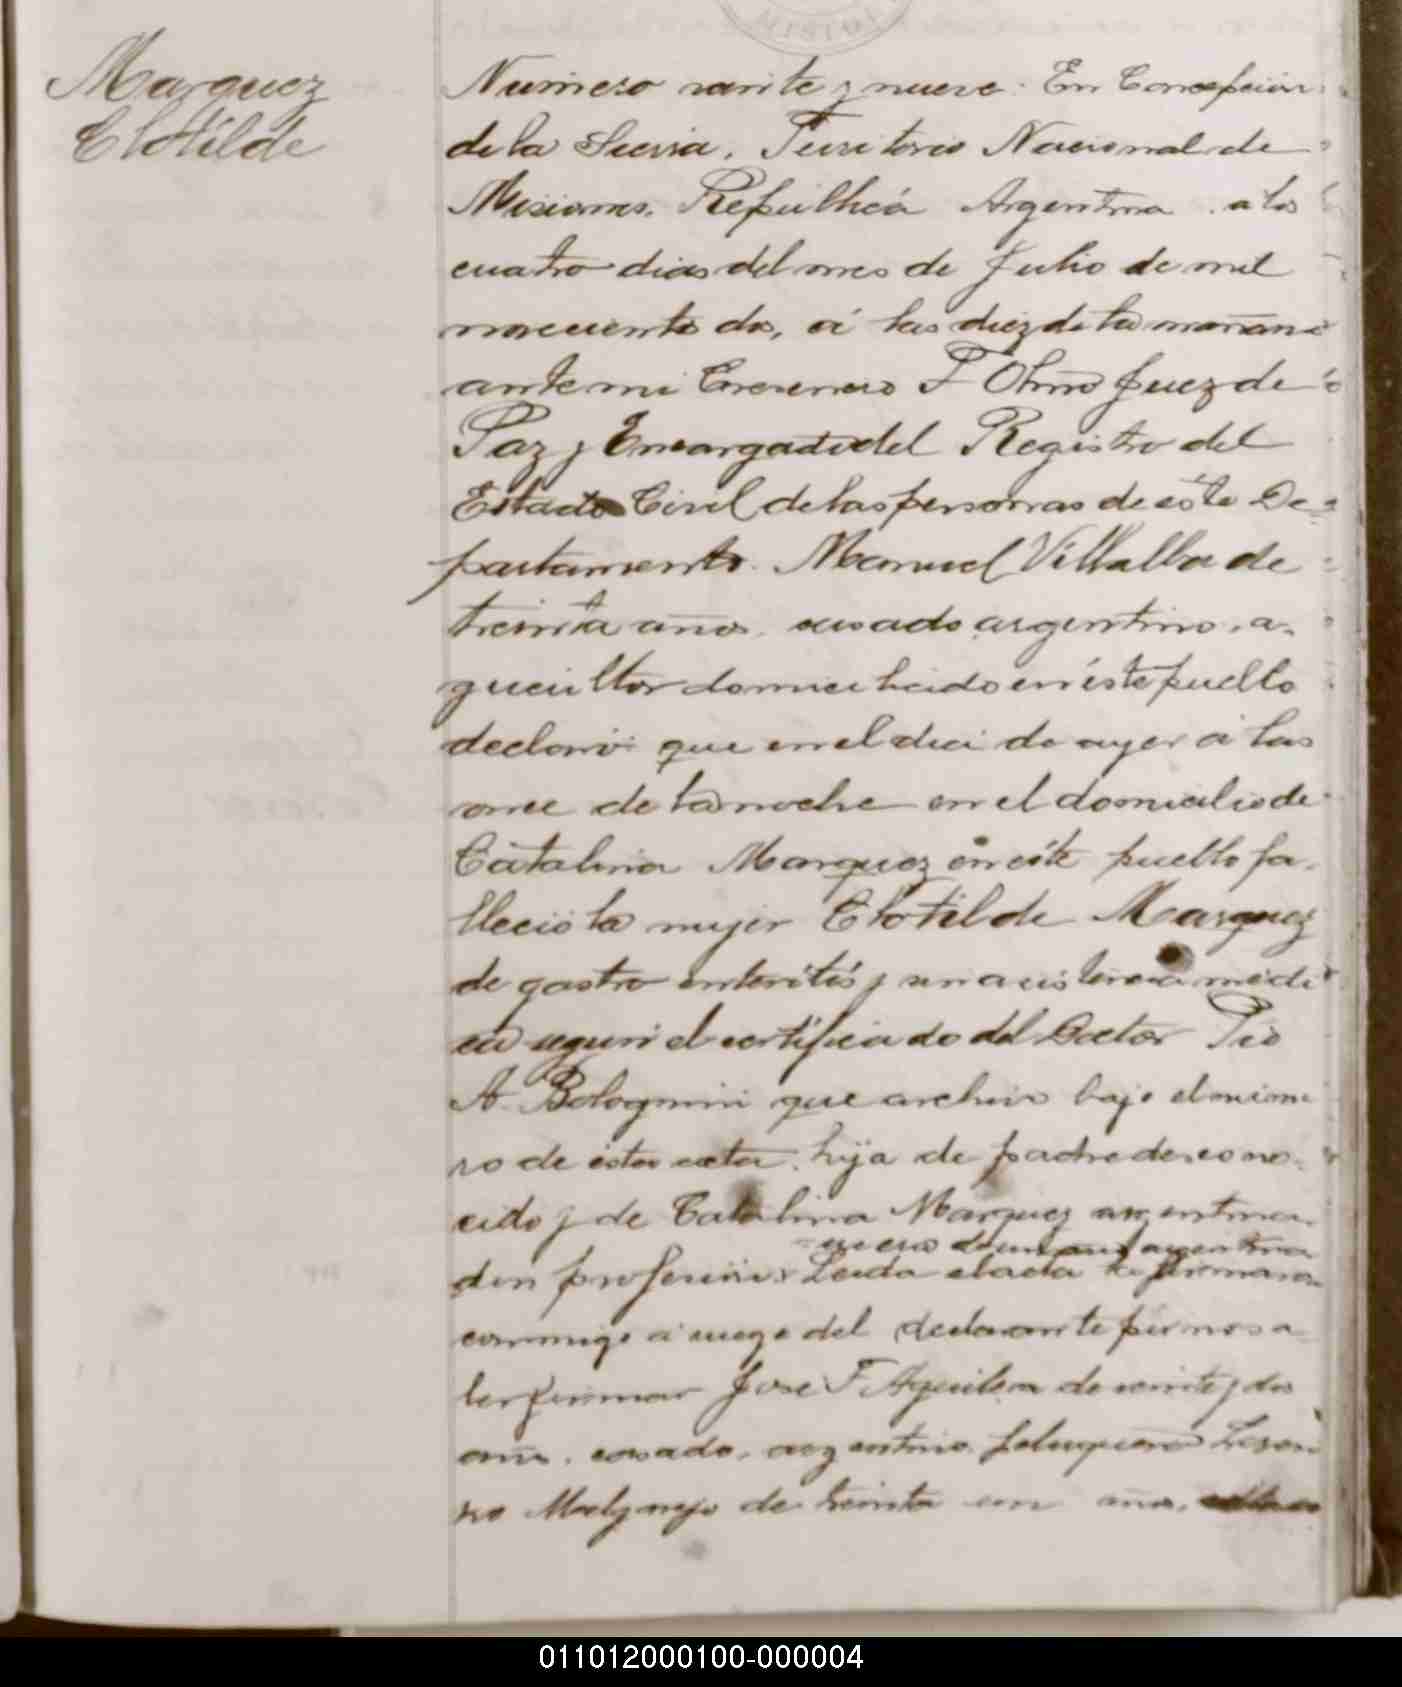 Marquez
Clotilde
Numero veinte y nueve. En Concepcion
de la Sierra, Territorio Nacional de
Misiones, Republica Argentina, a los
cuatro dias del mes de Julio de mil
novecientos dos, á las diez de la mañana
ante mi F Olmo Juez de
Paz y Encargado del Registro del
Estado Civil de las personas de éste De-
partamento. Manuel Villalba de
treinta años, casado argentino, a-
gricultor domiciliado en éste pueblo
declaró: que en el dia de ayer á las
once de la noche en el domicilio de
Catalina Marquez en éste pueblo fa-
lleció la mujer Clotilde Marquez
de gastro enteritis y sin asistencia médi
ca segun el certificado del Doctor Pio
A. Bolognini que archivo bajo el núme
ro de ésta acta, hija de padre descono-
cido y de Catalina Marquez argentina
era de un año argentina
sin profesión. Leida el acta la firmaron
conmigo á ruego del declarante por no sa
ber firmar Jose F Aguilera de veinte y dos
años, casado, argentino, peluquero
de treinta un años,
011012000100-000004